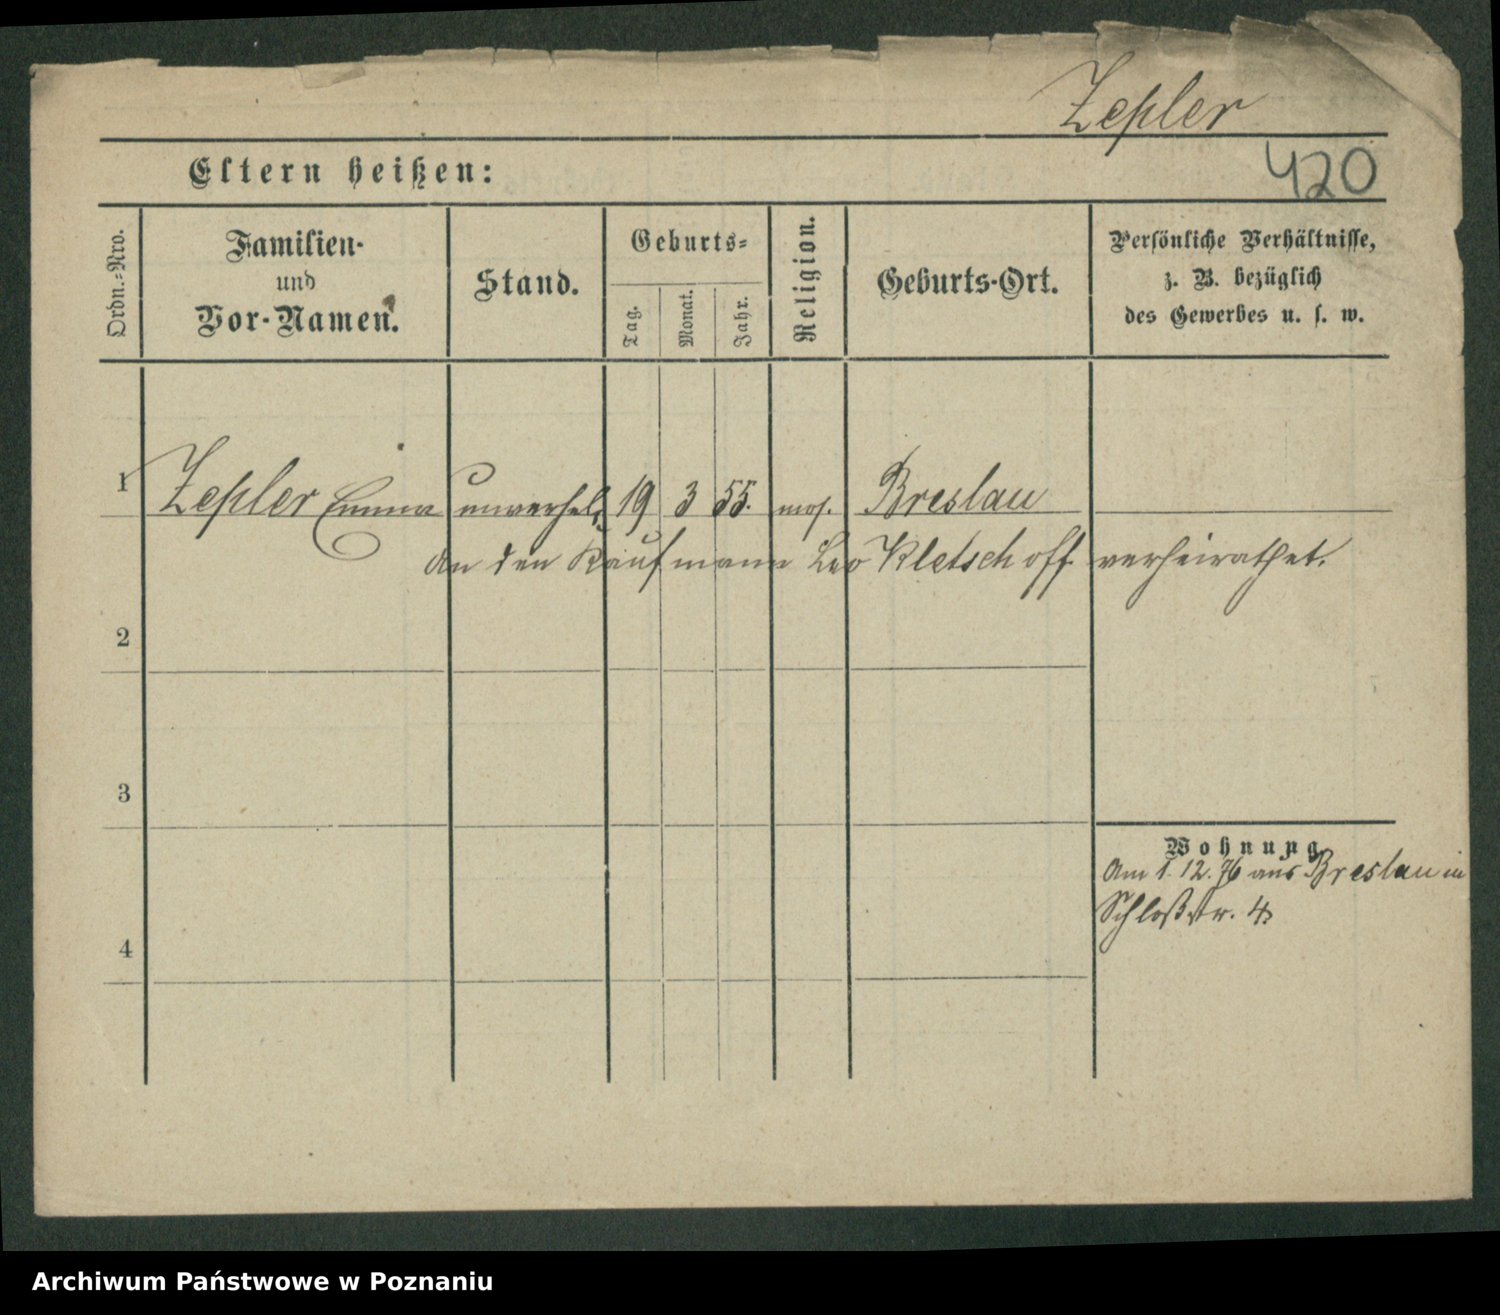 Zepler
Eltern heißen:
420
Ordn.-Nro.
Familien-
und
Vor-Namen.
Stand.
Geburts-
Tag.
Monat.
Jahr.
Religion.
Geburts-Ort.
Persönliche Verhältnisse,
z. B. bezüglich
des Gewerbes u. s. w.
1 Zepler Emma unverhel. 19 3 55. mos. Breslau
An den Kaufmann Leo Kletschoff verheirathet.
2
3
Wohnung
Am 1. 12. 76 aus Breslau in
Schloßstr. 4
4
Archiwum Państwowe w Poznaniu